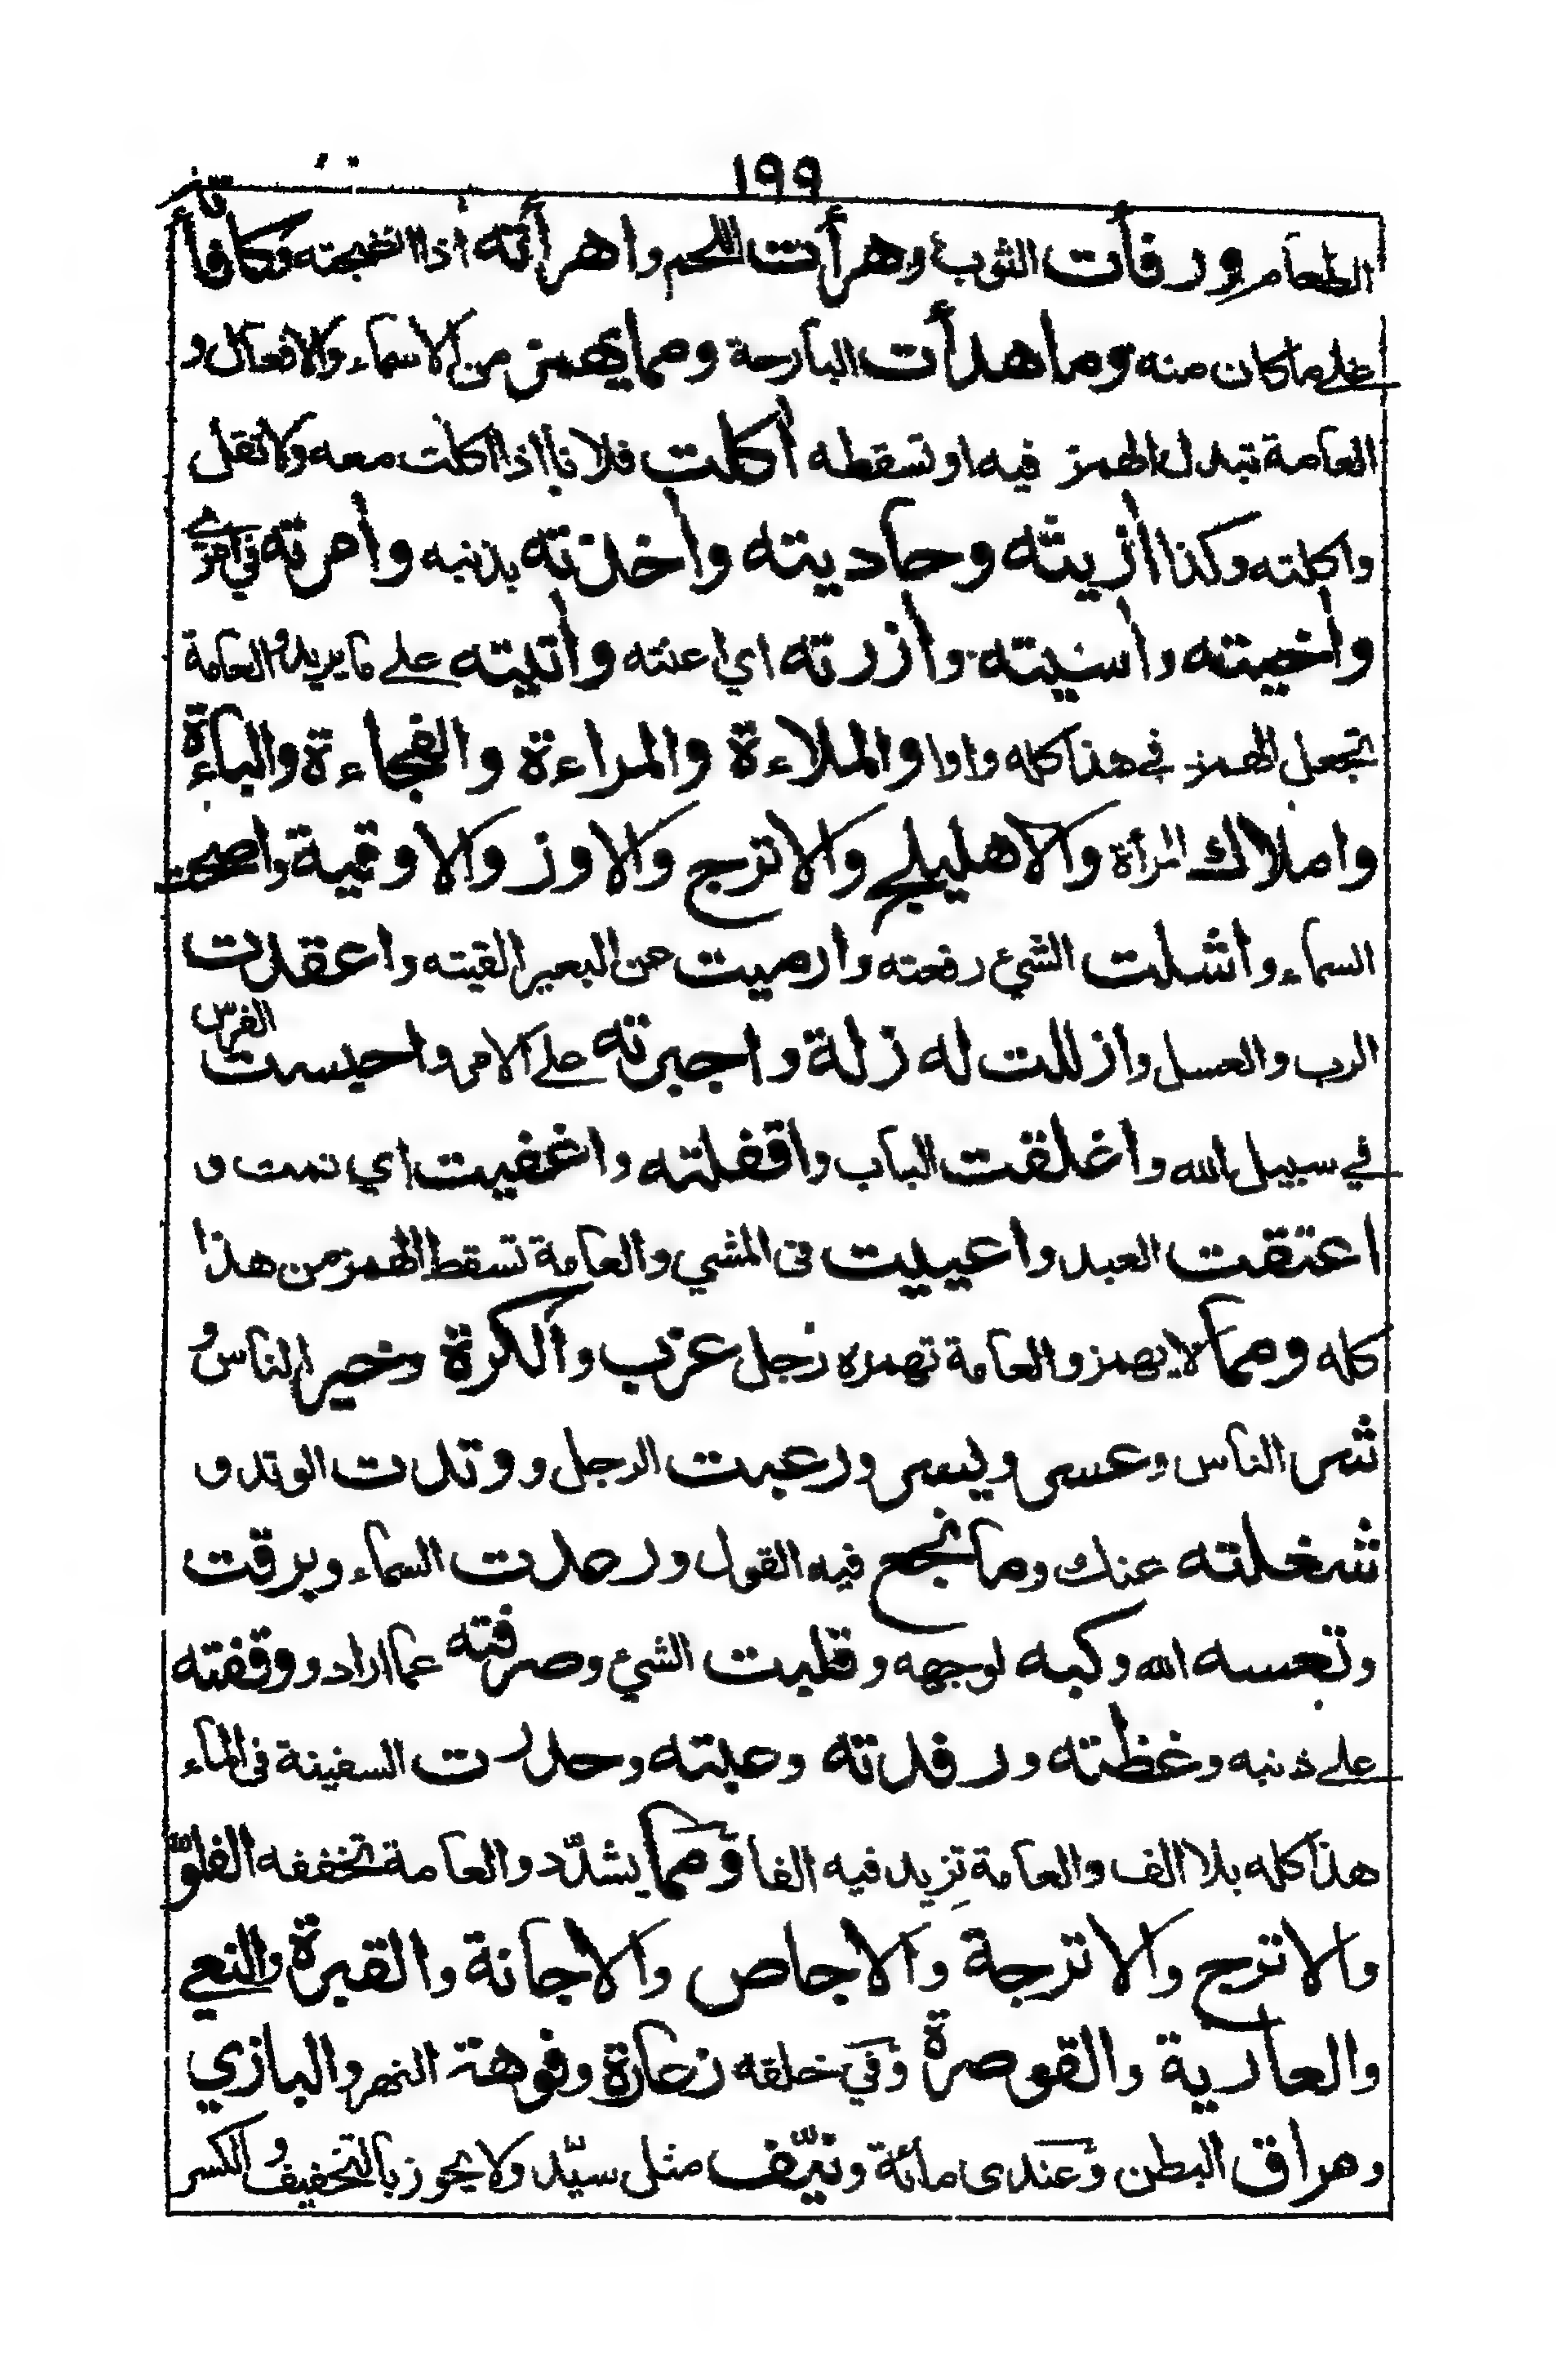 ١٩٩
الطعام ورفأت الثوب وهرأت اللحم واهرأته اذا انضجته وكافأته
علي ما كان منه وما هدأت البارحة ومما يهمز من الاسماء والافعال و
العامة تبدل الهمز فيه او تسقطه أكلت فلانا اذا اكلت معه ولا تقل
واكلته وكذا أزيته وحاديته وأخذته بذنبه وأمرته في امري
وأخيته وأسيته وأزرته اي اعنته وأتيته علي ما يريد والعامة
تجعل الهمز في هذا كله واوا والملاءة والمراءة والفجاءة والباءة
واملاك المرأة والاهليلج والاترج والاوز والاوقية واصحت
السماء واشلت الشيء رفعته وارميت عن البعير القيته واعقدت
الرب والعسل وازللت له زلة واجبرته علي الامر واحبست الفرس
في سبيل الله واغلقت الباب واقفلته واغفيت اي نمت و
اعتقت العبد واعييت فى المشي والعامة تسقط الهمز من هذا
كله ومما لا يهمز والعامة تهمزه رجل عزب والكرة وخير الناس و
شر الناس وعسر ويسر ورعبت الرجل ووتدت الوتد و
شغلته عنك وما نجع فيه القول ورعدت السماء وبرقت
وتعسه الله وكبه لوجهه وقلبت الشيء وصرفته عما اراد ووقفته
علي ذنبه وغظته ورفدته وعبته وحدرت السفينة فى الماء
هذا كله بلا الف والعامة تزيد فيه الفا ومما يشدّد والعامة تخففه الفلوّ
والاترج والاترجة والاجاص والاجانة والقبرة والنعي
والعارية والقوصرة وفي خلقه زعارة وفوهة النهر والبازي
وهراق البطن وعندى مائة ونيّف مثل سيّد ولا يجوز بالتخفيف والكسر